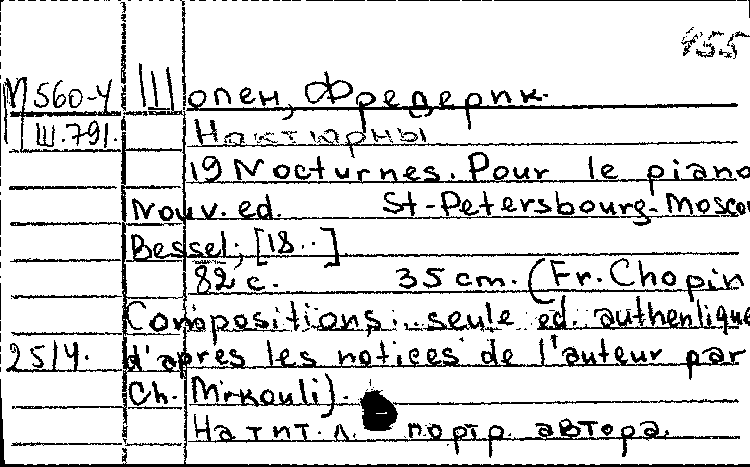 455
М560-4 Шопен, Фредерик.
Ш.791. Ноктюрны
19 Nocturnes. Pour le piano
Nouv. ed. St-Petersbourg-Moscou
Bessel; [18..]
82 с. 35 cm. (Fr. Chopin
Compositions... seule ed. authentique
2514. d'apres les notices de l'auteur par
Ch. Mikouli).
На тит. л. портр. автора.